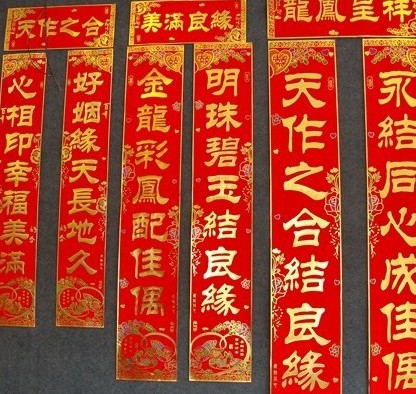 天作之合
好姻緣天長地久
心相印幸福美滿
美滿良緣
明珠碧玉結良緣
金龍彩鳳配佳偶
龍鳳呈祥
永結同心成佳偶
天作之合結良緣